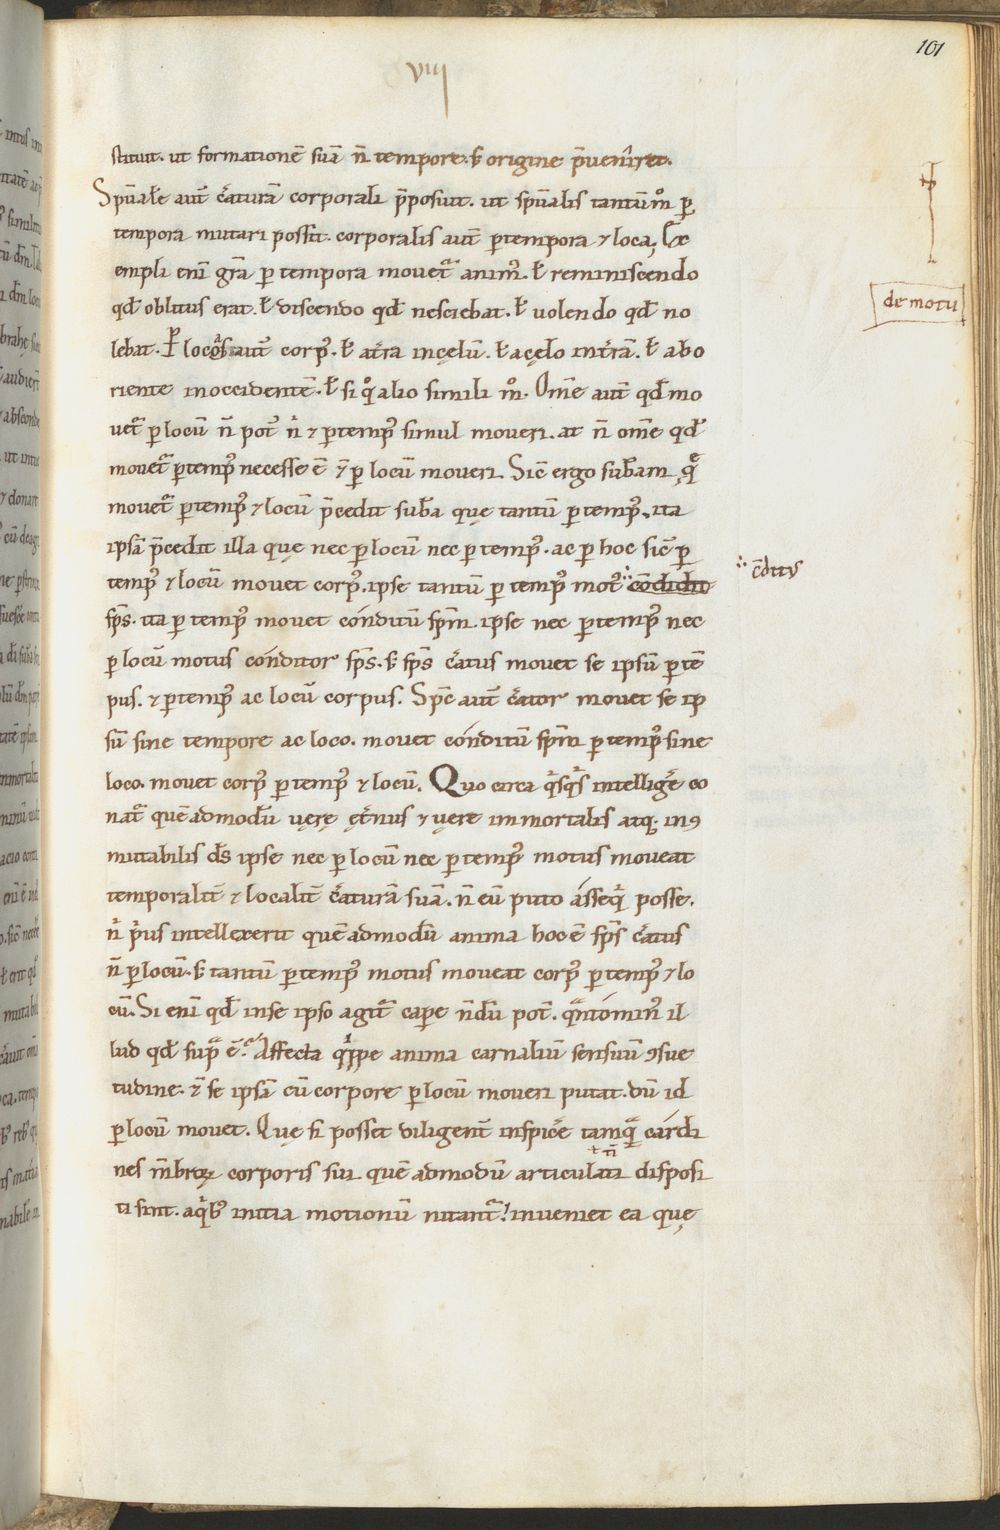 101
viii
stituit. ut formationē suā n̄ tempore. s; origine p̄veniret.
Sp̄uale aut̄ c̄aturā corporali p̄posuit. ut sp̄ualis tantūm̊ ꝑ
tempora mutari possit. corporalis aut̄ ꝑ tempora ⁊ loca. Ex
empli eni gr̄a ꝑ tempora movet᷑ anim᷒. ł reminiscendo
qd̄ oblitus erat. ł discendo qd̄ nesciebat. ł volendo qd̄ no
lebat. P locos aut̄ corp᷒. ł at̄ra in cęlū. ł a cęlo in t̄rā. ł ab o
riente in occidentē. ł si qͦ alio simili m̊. Om̄e aut̄ qd̄ mo
vet᷑ ꝑ locū n̄ pot᷑ n̊ ⁊ ꝑ temp᷒ simul moveri. at n̄ om̄e qd̄
movet᷑ ꝑ temp᷒ necesse ē ⁊̄ ꝑ locū moveri. Sic̄ ergo sub̄am q̨ͣ
movet᷑ ꝑ temp᷒ ⁊ locū p̄cedit sub̄a quę tantū ꝑ temp᷒. ita
ipsā p̄cedit illa quę nec ꝑ locū nec ꝑ temp᷒. ac ꝑ hoc sic̄ ꝑ
temp᷒ ⁊ locū movet corp᷒. ipse tantū ꝑ temp᷒ mot᷒ cōdidit
sp̄s. ita ꝑ temp᷒ movet cónditū sp̄m. ipse nec ꝑ temp᷒ nec
ꝑ locū motus cónditor sp̄s. s; sp̄s c̄atus movet se ipsū ꝑ tē
pus. ⁊ ꝑ temp᷒ ac locū corpus. Sp̄c aut̄ c̄ator movet se ip
sū sine tempore ac loco. movet cónditū sp̄m ꝑ temp᷒ sine
loco. movet corp᷒ ꝑ temp᷒ ⁊ locū. Quo circa qͥsqͥs intelligē co
nat᷑ quē admodū vęrę ęt̄nus ⁊ vere immortalis atq; inꝯ
mutabilis d̄s ipse nec ꝑ locū nec ꝑ temp᷒ motus moveat
temporalit̄ ⁊ localit̄ c̄aturā suā. n̄ eū puto ásseqͥ posse.
n̊ pͥus intellexerit quē admodū anima hoc ē sp̄s c̄atus
n̄ ꝑ locū. s; tantū ꝑ temp᷒ motus moveat corp᷒ ꝑ temp᷒ ⁊ lo
cū. Si eni qd̄ in se ipso agit᷑ cape n̄dū pot̄. qͣnto min᷒ il
lud qd̄ supͣ ē. Affecta qͥppe anima carnaliū sensuū ꝯsue
tudine. ⁊̄ se ipsā cū corpore ꝑ locū moveri putat. dū id
ꝑ locū movet. Quę si posset diligent̄ inspicē tamqͣ cárdi
nes m̄broꝝ corporis sui quē admodū articulati disposi
ti sint. a qͥb᷒ initia motionū nitant᷑. inveniet ea quę
de motu
cōditus